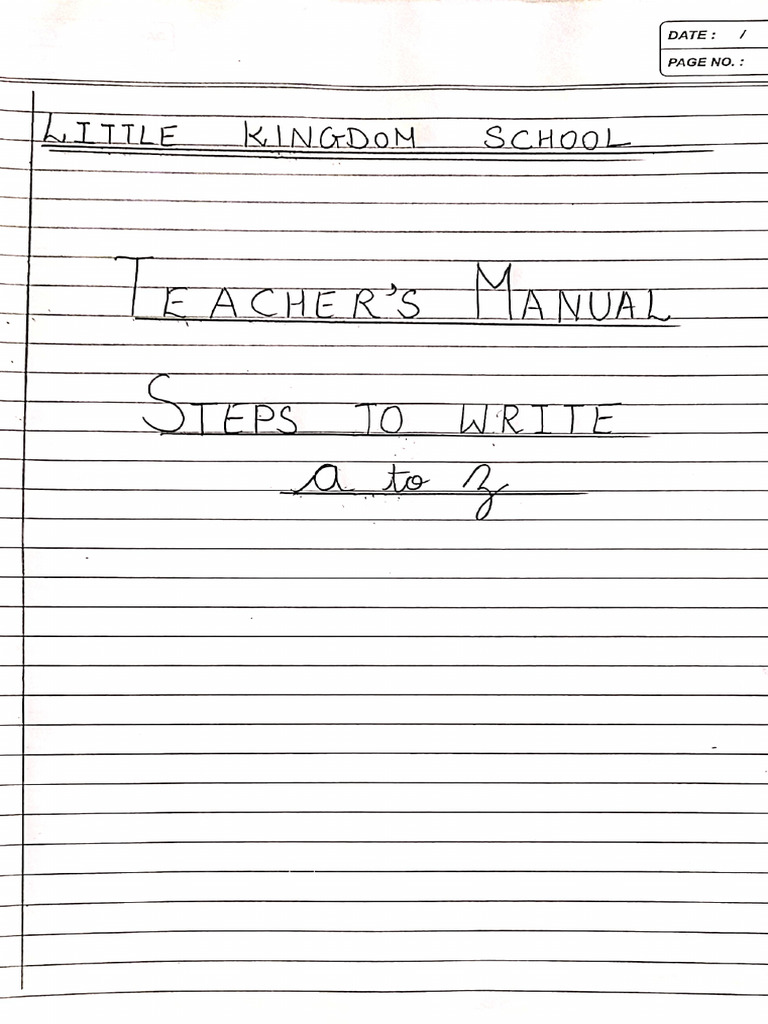 DATE : /
PAGE NO. :
LITTLE KINGDOM SCHOOL
TEACHER'S MANUAL
STEPS TO WRITE
a to z